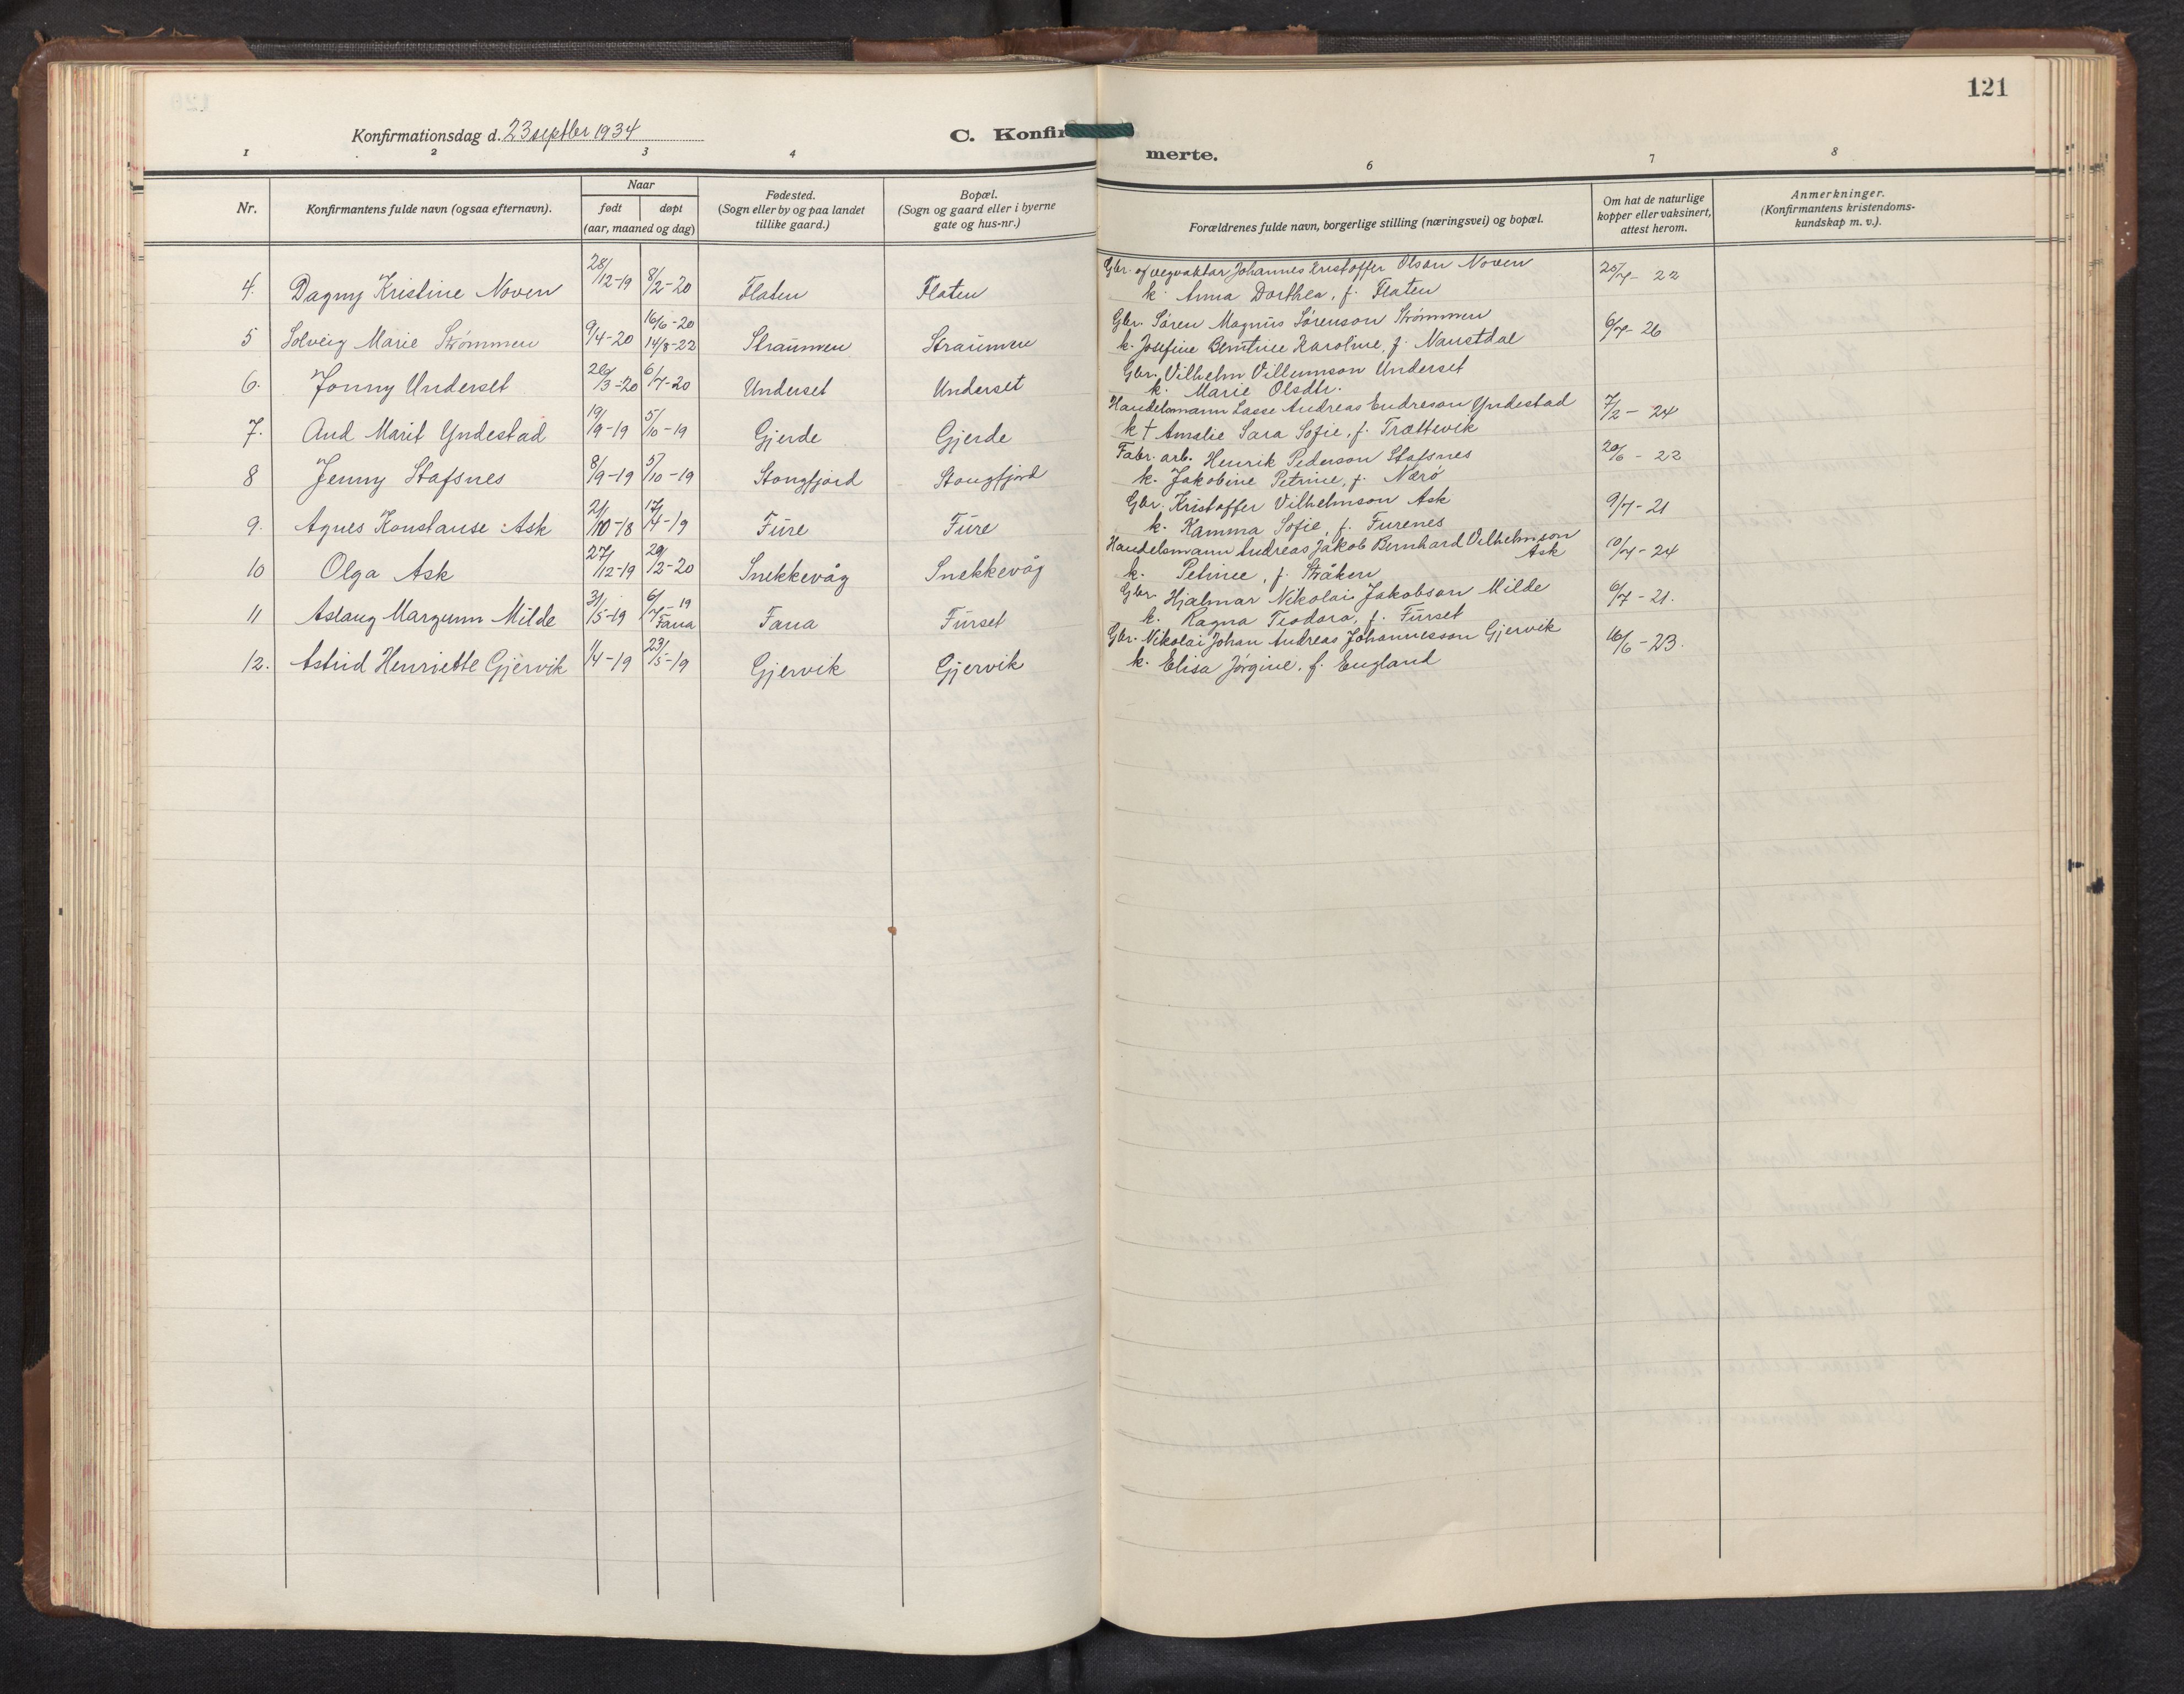 121
Konfirmationsdag d. 23 septbr 1934
C. Konfir
merte.
1 2 3 4 6 7 8
Nr.
Konfirmantens fulde navn (ogsaa efternavn).
Naar
født døpt
(aar, maaned og dag)
Fødested.
(Sogn eller by og paa landet
tillike gaard.)
Bopæl.
(Sogn og gaard eller i byerne
gate og hus-nr.)
Forældrenes fulde navn, borgerlige stilling (næringsvei) og bopæl.
Om hat de naturlige
kopper eller vaksinert,
attest herom.
Anmerkninger.
(Konfirmantens kristendoms-
kundskap m. v.).
4. Dagny Kristine Noven 28/12-19 8/2-20 Flaten Flaten
Gbr. og vegvaktar Johannes Kristoffer Olson Noven 25/7-22
k. Anna Dorthea, f. Flaten
5 Solveig Marie Strømmen 9/4-20 16/6-20 14/8-22 Straumen Straumen
Gbr. Søren Magnus Sørenson Strømmen 6/7-26
k. Josefine Berntine Karoline, f. Naustdal
6. Jonny Underset 26/3-20 6/7-20 Underset Underset
Gbr. Vilhelm Villumson Underset
k. Marie Olsdtr.
7. Aud Marit Yndestad 19/9-19 5/10-19 Gjerde Gjerde
Handelsmann Lasse Andreas Endreson Yndestad 7/2-24
k † Amalie Sara Sofie, f. Trættevik
8 Jenny Stafsnes 8/9-19 5/10-19 Stongfjord Stongfjord
Fabr. arb. Henrik Pederson Stafsnes 20/6-22
k. Jakobine Petrine, f. Nærø
9. Agnes Konstanse Ask 21/10-18 17/4-19 Fure Fure
Gbr. Kristoffer Vilhelmson Ask 9/7-21
k. Hamma Sofie, f. Furenes
10 Olga Ask 27/12-19 29/2-20 Snekkevåg Snekkevåg
Handelsmann Andreas Jakob Bernhard Vilhelmson
Ask 10/7-24
k. Petrine, f. Stråken
11 Aslaug Margunn Milde 31/5-19 6/7-19 Fana Fana Furset
Gbr. Hjalmar Nikolai Jakobson Milde 6/7-21.
k. Ragna Teodora, f. Furset
12. Astrid Henriette Gjervik 1/4-19 23/5-19 Gjervik Gjervik
Gbr. Nikolai Johan Andreas Johannesson Gjervik 16/6-23.
k. Elisa Jørgine, f. England